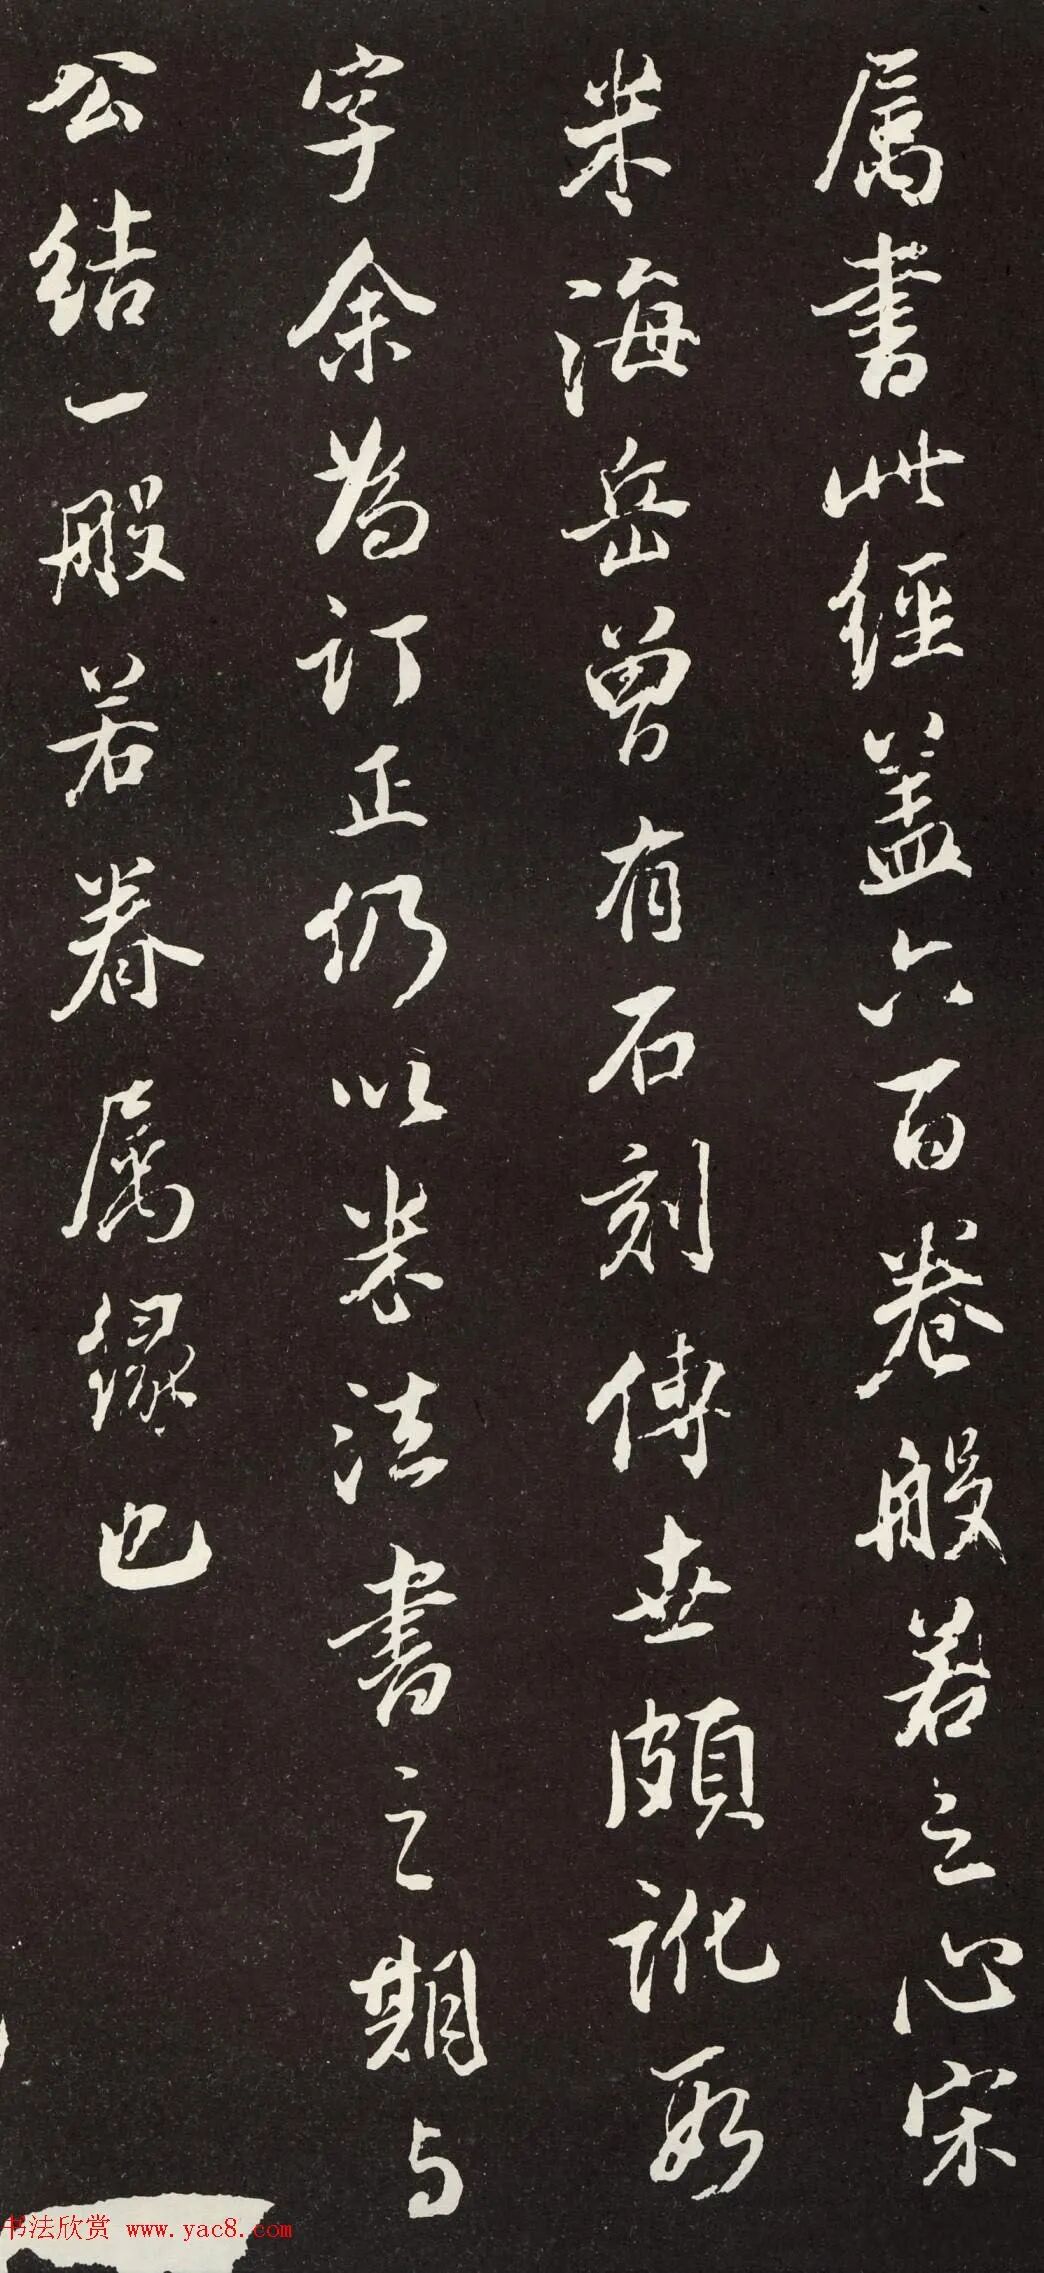 属書此經盖六百卷般若之心宋
米海岳曾有石刻傳世頗訛數
字余為訂正仍以米法書之期与
公結一般若眷属緣也
书法欣赏 www.yac8.com